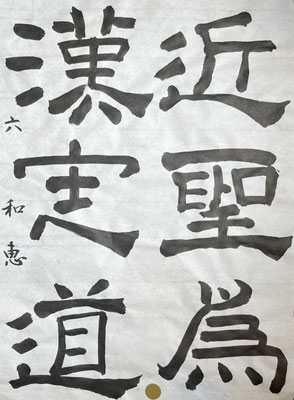 近聖爲
漢定道
六 和恵